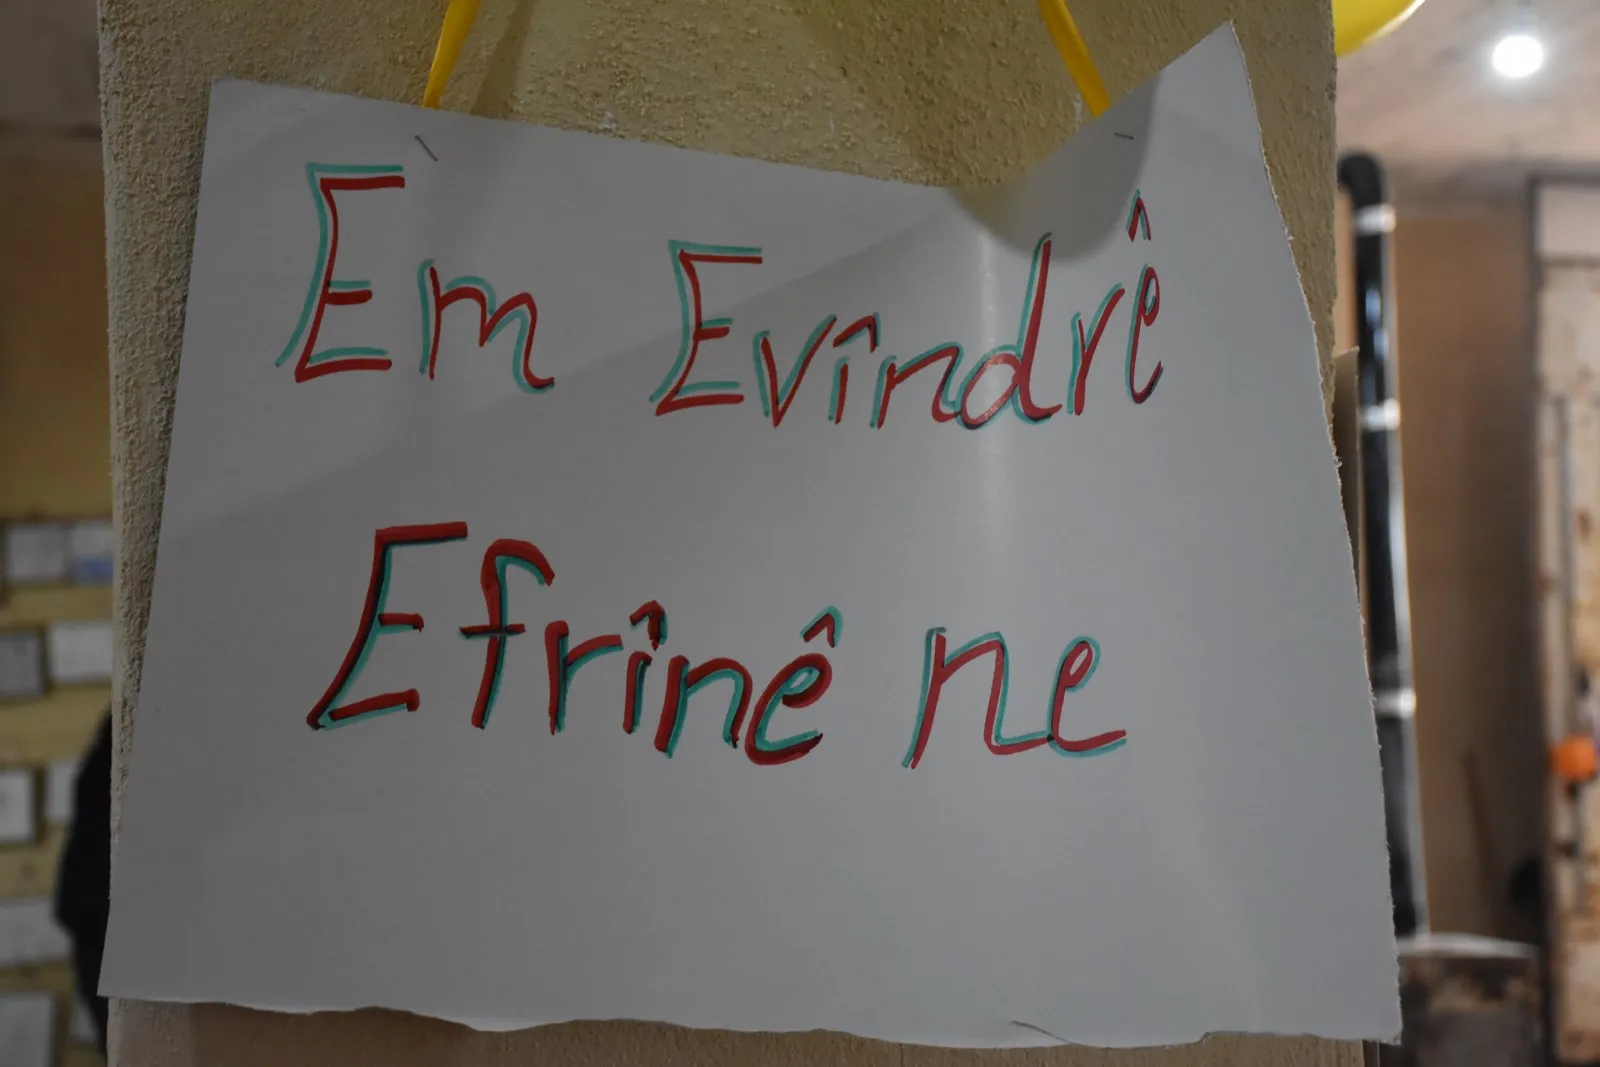 Em Evîndrê
Efrînê ne